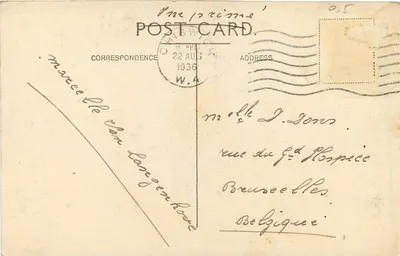 Imprimé
0,5
POST CARD.
CORRESPONDENCE
ADDRESS
CHISWICK
22 AUG
1936
W.4
Marcelle Van Langenhove
Melle D. Dons
rue du Gd Hospice
Bruxelles.
Belgique